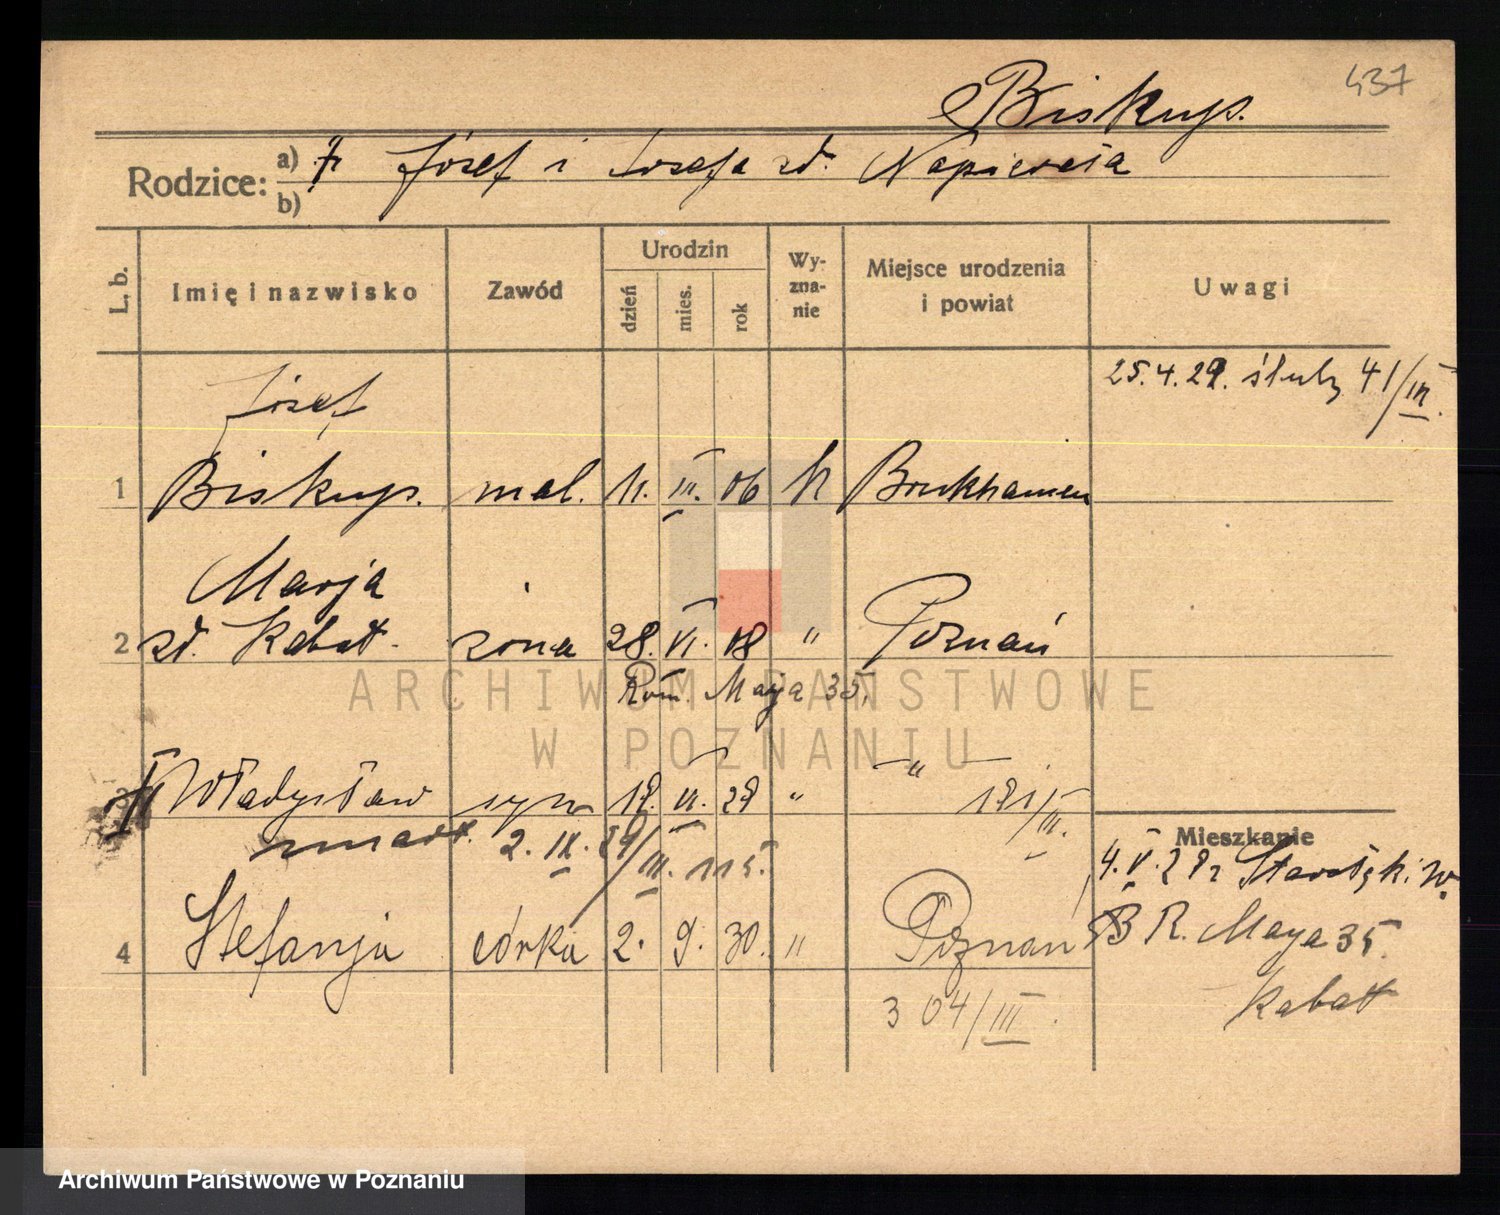 437
Biskup.
Rodzice: a) † Józef i Józefa zd. Napierała
b)
L. b. Imię i nazwisko Zawód Urodzin dzień mies. rok Wy-zna-nie Miejsce urodzenia i powiat Uwagi
25.4.29. śluby 41/III.
Józef
1 Biskup. mal. 11. III. 06 k Bruckhausen
Marja
2 zd. Kabat. żona 28. VI. 08 " Poznań
Rom. Maya 35.
3 Władysław syn 19. VI. 29 " "
191/III.
zmarł. 2. IX. 29/III. 115.
Mieszkanie
4. V. 29 z
B R. Maya 35.
4 Stefanja córka 2. 9. 30. " Poznań
Kabat
304/III.
ARCHIWUM PAŃSTWOWE
W POZNANIU
Archiwum Państwowe w Poznaniu